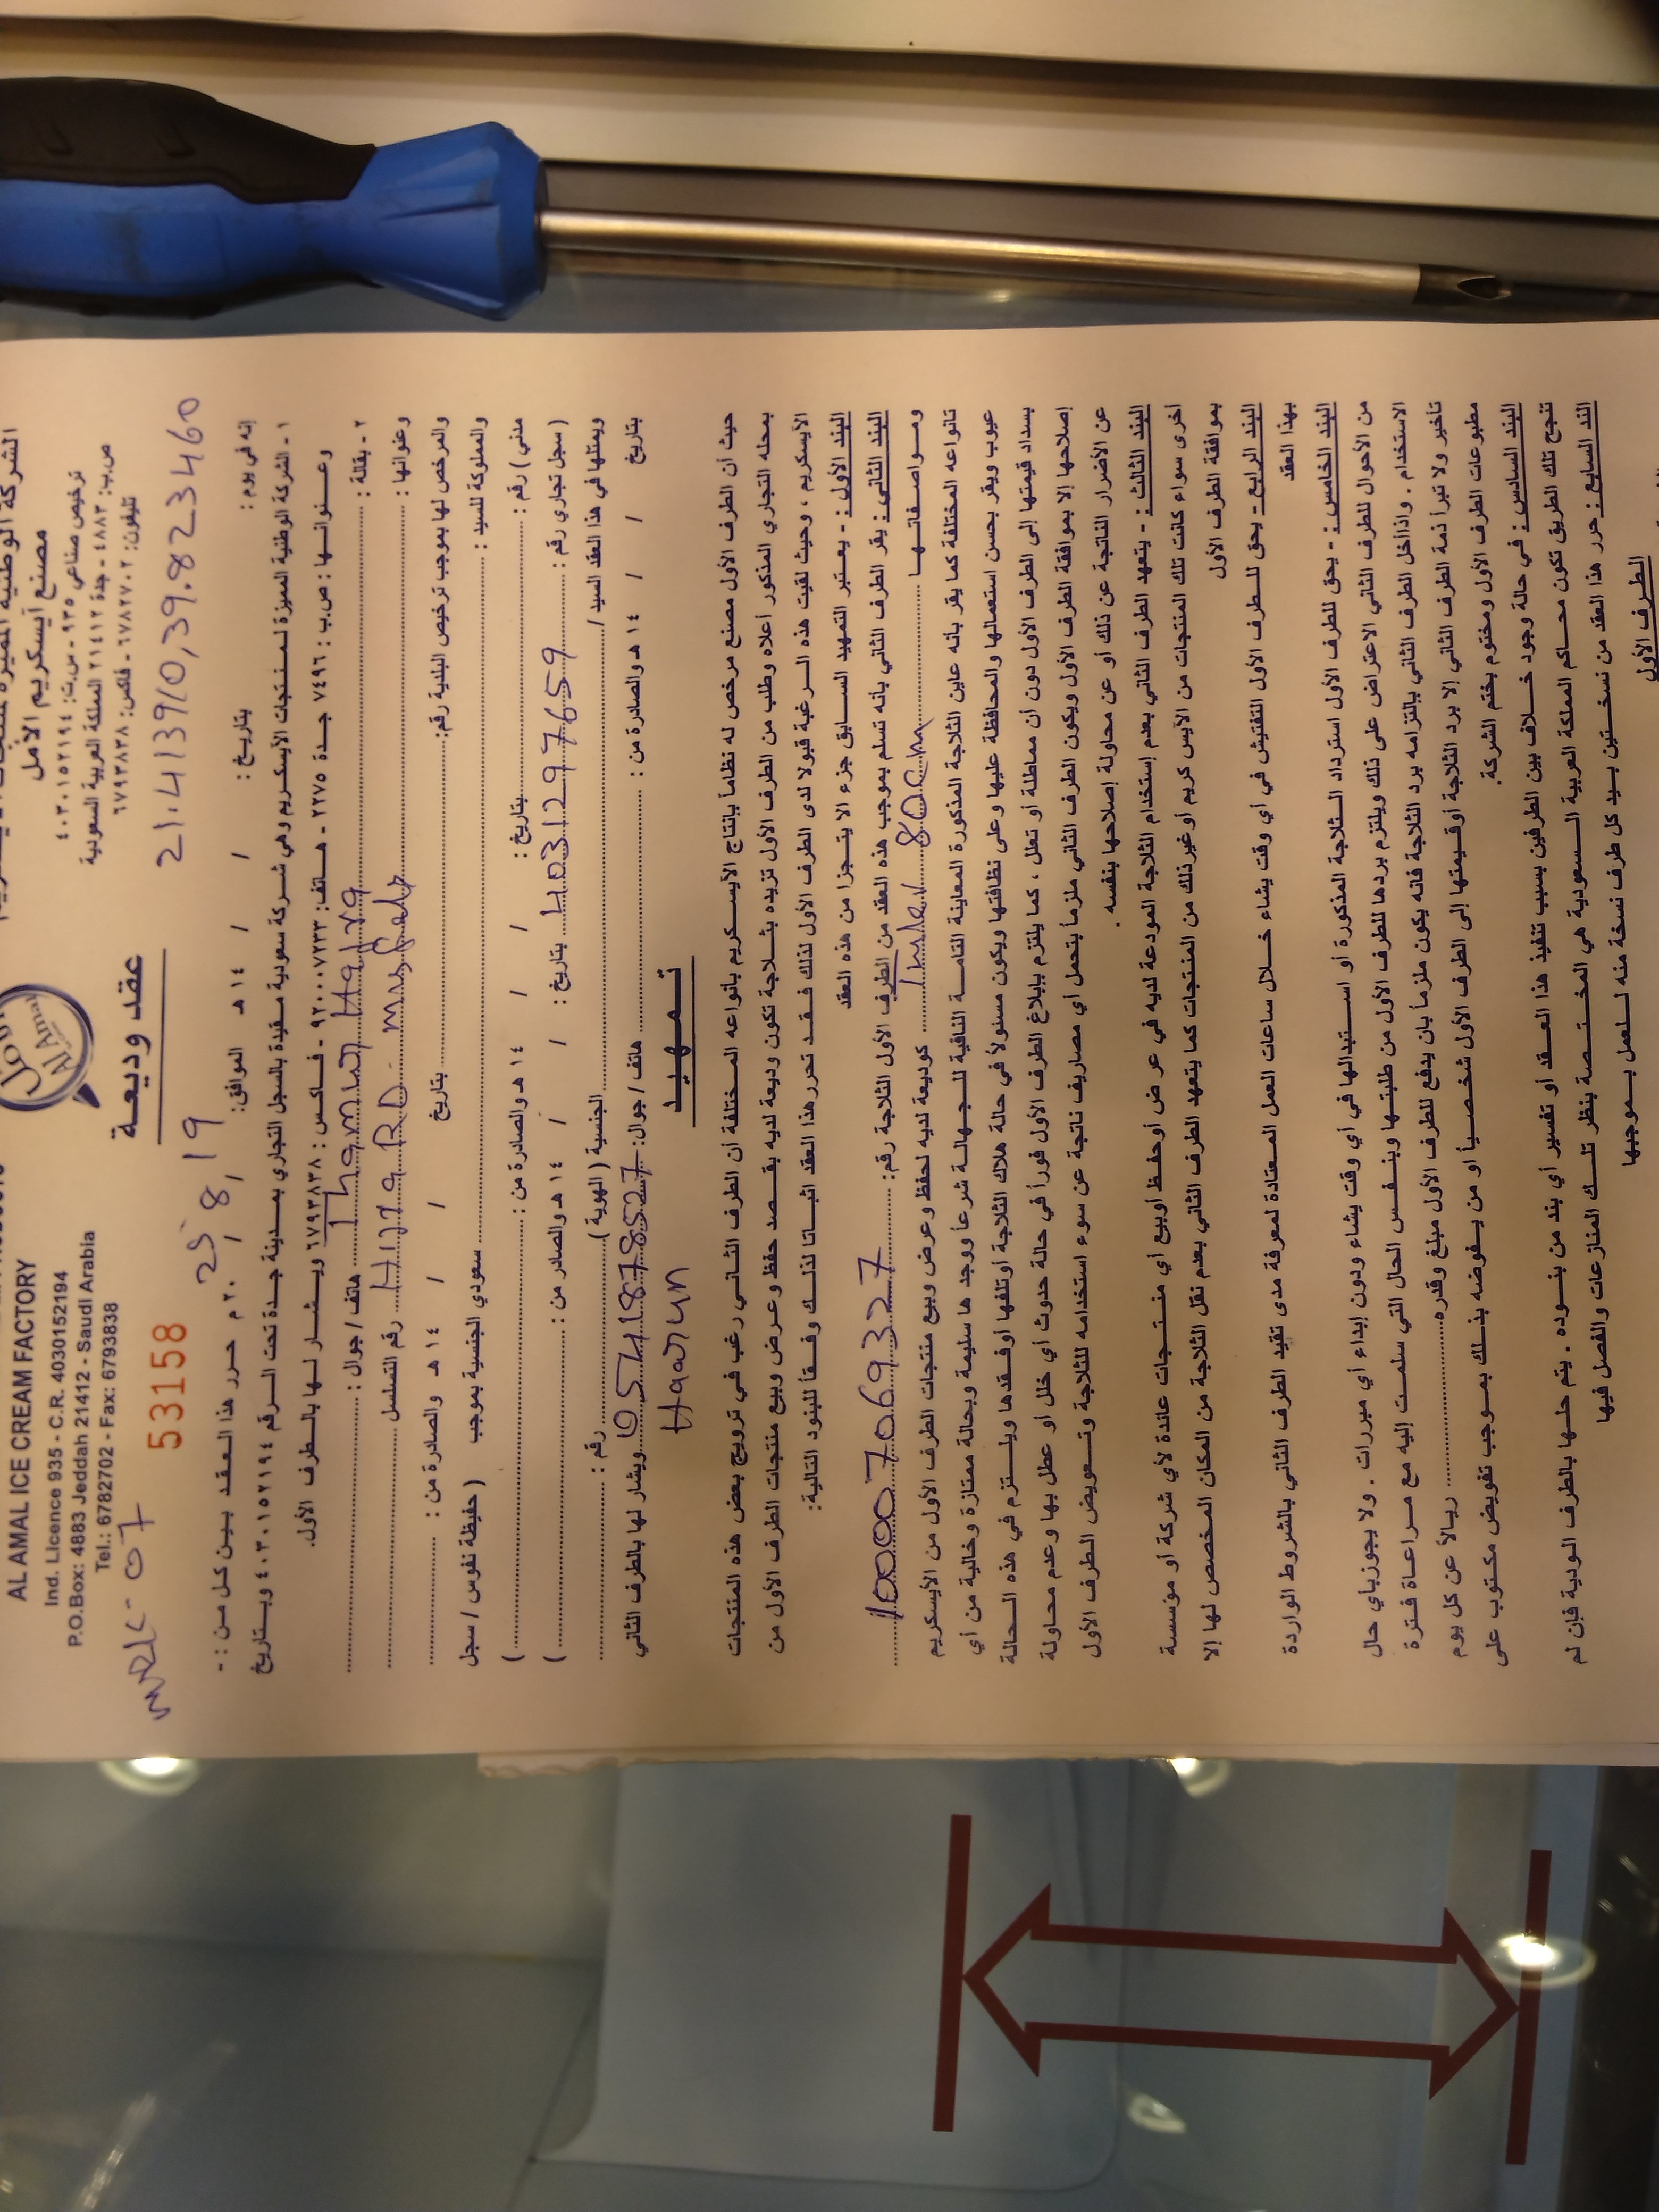 الشركة الوطنية المميزة لمنتجات
مصنع آيسكريم الأمل
ترخيص صناعي ٩٣٥ - س.ت: ٤٠٣٠١٥٢١٩٤
ص.ب: ٤٨٨٣ - جدة ٢١٤١٢ المملكة العربية السعودية
تليفون: ٦٧٨٢٧٠٢ - فاكس: ٦٧٩٣٨٣٨
Al Amal
AL AMAL ICE CREAM FACTORY
Ind. Licence 935 - C.R. 4030152194
P.O.Box: 4883 Jeddah 21412 - Saudi Arabia
Tel.: 6782702 - Fax: 6793838
عقد وديعة
53158
21.413910,39.823460
إنه في يوم : بتاريخ : / / ١٤ هـ الموافق: 25, 8, 19 ٢٠ م حرر هذا العقد بين كل من : -
١ - الشركة الوطنية المميزة لمنتجات الآيسكريم وهي شركة سعودية مقيدة بالسجل التجاري بمدينة جدة تحت الرقم ٤٠٣٠١٥٢١٩٤ وبتاريخ
وعنوانها : ص.ب : ٧٤٩٦ جدة ٢٢٧٥ - هاتف: ٩٢٠٠٠٧٢٣٣ - فاكس : ٦٧٩٣٨٣٨ ويشار لها بالطرف الأول.
٢ - بقالة : هاتف / جوال :
وعنوانها : رقم التسلسل
والمرخص لها بموجب ترخيص البلدية رقم: بتاريخ / / ١٤ هـ والصادرة من :
والمملوكة للسيد : سعودي الجنسية بموجب ( حفيظة نفوس / سجل
مدني ) رقم : بتاريخ : / / ١٤ هـ والصادرة من : )
( سجل تجاري رقم : 4031297659 بتاريخ : / / ١٤ هـ والصادر من : )
ويمثلها في هذا العقد السيد / الجنسية ( الهوية ) رقم :
بتاريخ / / ١٤ هـ والصادرة من : هاتف / جوال: 0541878527 ويشار لها بالطرف الثاني
Haarun
تمهيد
حيث أن الطرف الأول مصنع مرخص له نظاماً بإنتاج الآيسكريم بأنواعه المختلفة أن الطرف الثاني رغب في ترويج بعض هذه المنتجات
بمحله التجاري المذكور أعلاه وطلب من الطرف الأول تزيده بثلاجة تكون وديعة لديه بقصد حفظ وعرض وبيع منتجات الطرف الأول من
الآيسكريم ، وحيث لقيت هذه الرغبة قبولا لدى الطرف الأول لذلك فقد تحرر هذا العقد اثباتا لذلك وفقاً للبنود التالية :
البند الأول : - يعتبر التمهيد السابق جزء لا يتجزا من هذه العقد
البند الثاني : يقر الطرف الثاني بأنه تسلم بموجب هذه العقد من الطرف الأول الثلاجة رقم: 10007069327
ومواصفاتها كوديعة لديه لحفظ وعرض وبيع منتجات الطرف الأول من الآيسكريم
بانواعه المختلفة كما يقر بأنه عاين الثلاجة المذكورة المعاينة التامة النافية للجهالة شرعاً ووجد ها سليمة وبحالة ممتازة وخالية من أي
عيوب ويقر بحسن استعمالها والمحافظة عليها وعلى نظافتها ويكون مسئولاً في حالة هلاك الثلاجة أو تلفها أو فقدها ويلتزم في هذه الحالة
بسداد قيمتها إلى الطرف الأول دون أن مماطلة أو تعلل ، كما يلتزم بإبلاغ الطرف الأول فوراً في حالة حدوث أي خلل أو عطل بها وعدم محاولة
إصلاحها إلا بموافقة الطرف الأول ويكون الطرف الثاني ملزماً بتحمل أي مصاريف ناتجة عن سوء استخدامه للثلاجة وتعويض الطرف الأول
عن الأضرار الناتجة عن ذلك أو عن محاولة إصلاحها بنفسه .
البند الثالث : - يتعهد الطرف الثاني بعدم إستخدام الثلاجة المودعة لديه في عرض أو حفظ أو بيع أي منتجات عائدة لأي شركة أو مؤسسة
أخرى سواء كانت تلك المنتجات من الآيس كريم أو غير ذلك من المنتجات كما يتعهد الطرف الثاني بعدم نقل الثلاجة من المكان المخصص لها إلا
بموافقة الطرف الأول
البند الرابع - يحق للطرف الأول التفتيش في أي وقت يشاء خلال ساعات العمل المعتادة لمعرفة مدى تقيد الطرف الثاني بالشروط الواردة
بهذا العقد
البند الخامس : - يحق للطرف الأول استرداد الثلاجة المذكورة أو استبدالها في أي وقت يشاء ودون إبداء أي مبررات . ولا يجوز بأي حال
من الأحوال للطرف الثاني الاعتراض على ذلك ويلتزم بردها للطرف الأول من طلبتها وبنفس الحال التي سلمت إليه مع مراعاة فترة
الاستخدام . واذا أخل الطرف الثاني بالتزامه برد الثلاجة فانه يكون ملزماً بان يدفع للطرف الأول مبلغ وقدره ريالاً عن كل يوم
تأخير ولا تبرأ ذمة الطرف الثاني إلا برد الثلاجة أو قيمتها إلى الطرف الأول شخصياً أو من يفوضه بذلك بموجب تفويض مكتوب على
مطبوعات الطرف الأول ومختوم بختم الشركة.
البند السادس : في حالة وجود خلاف بين الطرفين بسبب تنفيذ هذا العقد أو تفسير أي بند من بنوده . يتم حلها بالطرف الودية فإن لم
تنجح تلك الطريق تكون محاكم المملكة العربية السعودية هي المختصة بنظر تلك المنازعات والفصل فيها
البند السابع : حرر هذا العقد من نسختين بيد كل طرف نسخة منه للعمل بموجبها
الطرف الأول